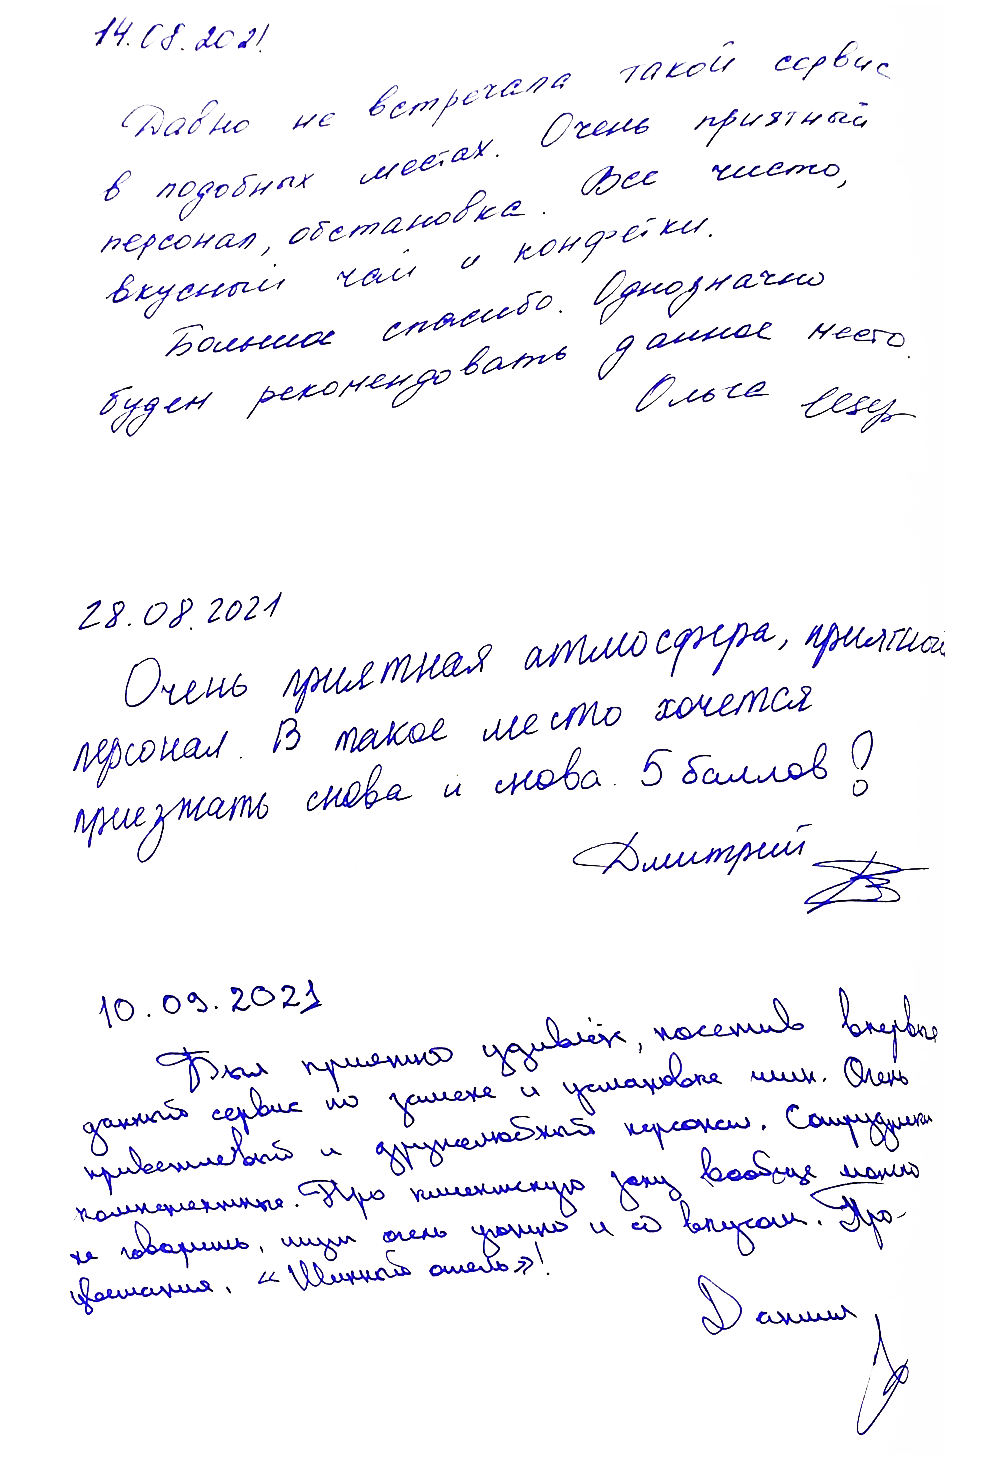 14.08.2021.
Давно не встречала такой сервис
в подобных местах. Очень приятный
персонал, обстановка. Все чисто,
вкусный чай и конфетки.
Большое спасибо. Однозначно
будем рекомендовать данное место.
Ольга
28.08.2021
Очень приятная атмосфера, приятной
персонал. В такое место хочется
приезжать снова и снова. 5 баллов!
Дмитрий
10.09.2021
Был приятно удивлён, посетив впервые
данный сервис по замене и установке шин. Очень
приветливый и дружелюбный персонал. Сотрудники
компетентные. Про клиентскую зону вообще можно
не говорить, там очень уютно и со вкусом. Про-
цветания, «Шинный отель»!
Даниил